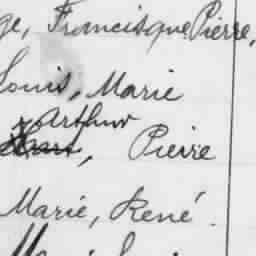 ge, Francisque Pierre,
Louis, Marie
Arthur
, Pierre
Marie, René.